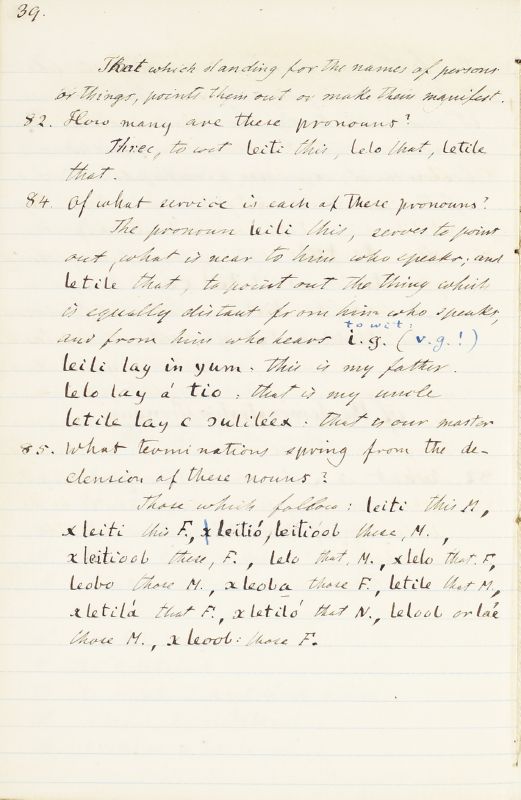 39.
That which standing for the names of persons
or things, points them out or make them manifest.
82. How many are these pronouns?
Three, to wit leiti this, lelo that, letile
that.
84. Of what service is each of these pronouns?
The pronoun leili this, serves to point
out, what is near to him who speaks; and
letile that, to point out the thing which
is equally distant from him who speaks,
to wit:
and from him who hears i.g. (v.g.!)
leili lay in yum. this is my father.
lelo lay á tio: that is my uncle
letile lay c : that is our master
85. What terminations spring from the de-
clension of these nouns?
Those which follow: leiti this M,
xleiti this F., xleitió, leitioob these, M.,
xleitioob these, F., lelo that, M., xlelo that. F,
leobo those M., xleoba those F., letile that M,
xletilá that F., xletiló that N., leloob or láe
those M., xleoob: those F.